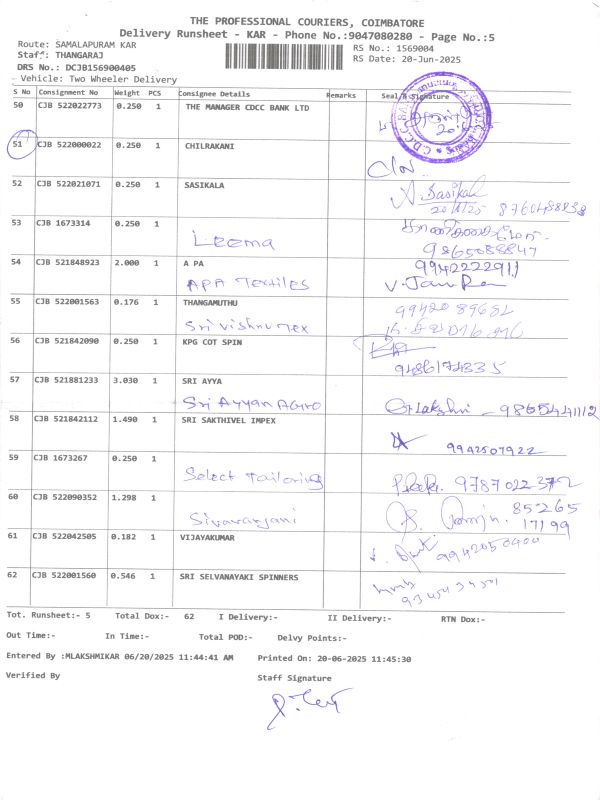 THE PROFESSIONAL COURIERS, COIMBATORE
Delivery Runsheet - KAR - Phone No.:9047080280 - Page No.:5
Route: SAMALAPURAM KAR
Staff: THANGARAJ
DRS No.: DCJB156900405
Vehicle: Two Wheeler Delivery
RS No.: 1569004
RS Date: 20-Jun-2025
S No Consignment No Weight PCS Consignee Details Remarks Seal & Signature
50 CJB 522022773 0.250 1 THE MANAGER CDCC BANK LTD
51 CJB 522000022 0.250 1 CHILRAKANI
52 CJB 522021071 0.250 1 SASIKALA
A. Sasikala
8760488838
53 CJB 1673314 0.250 1
Leema
9865088847
54 CJB 521848923 2.000 1 A PA
9942222911
APA Textiles
55 CJB 522001563 0.176 1 THANGAMUTHU
Sri Vishnu Tex
56 CJB 521842090 0.250 1 KPG COT SPIN
9486174335
57 CJB 521881233 3.030 1 SRI AYYA
Sri Ayyan Agro
9865441112
58 CJB 521842112 1.490 1 SRI SAKTHIVEL IMPEX
9942507922
59 CJB 1673267 0.250 1
Select Tailoring
9787022372
60 CJB 522090352 1.298 1
Sivaranjani
85265
17199
61 CJB 522042505 0.182 1 VIJAYAKUMAR
9942050400
62 CJB 522001560 0.546 1 SRI SELVANAYAKI SPINNERS
Tot. Runsheet:- 5 Total Dox:- 62 I Delivery:- II Delivery:- RTN Dox:-
Out Time:- In Time:- Total POD:- Delvy Points:-
Entered By :MLAKSHMIKAR 06/20/2025 11:44:41 AM Printed On: 20-06-2025 11:45:30
Verified By Staff Signature